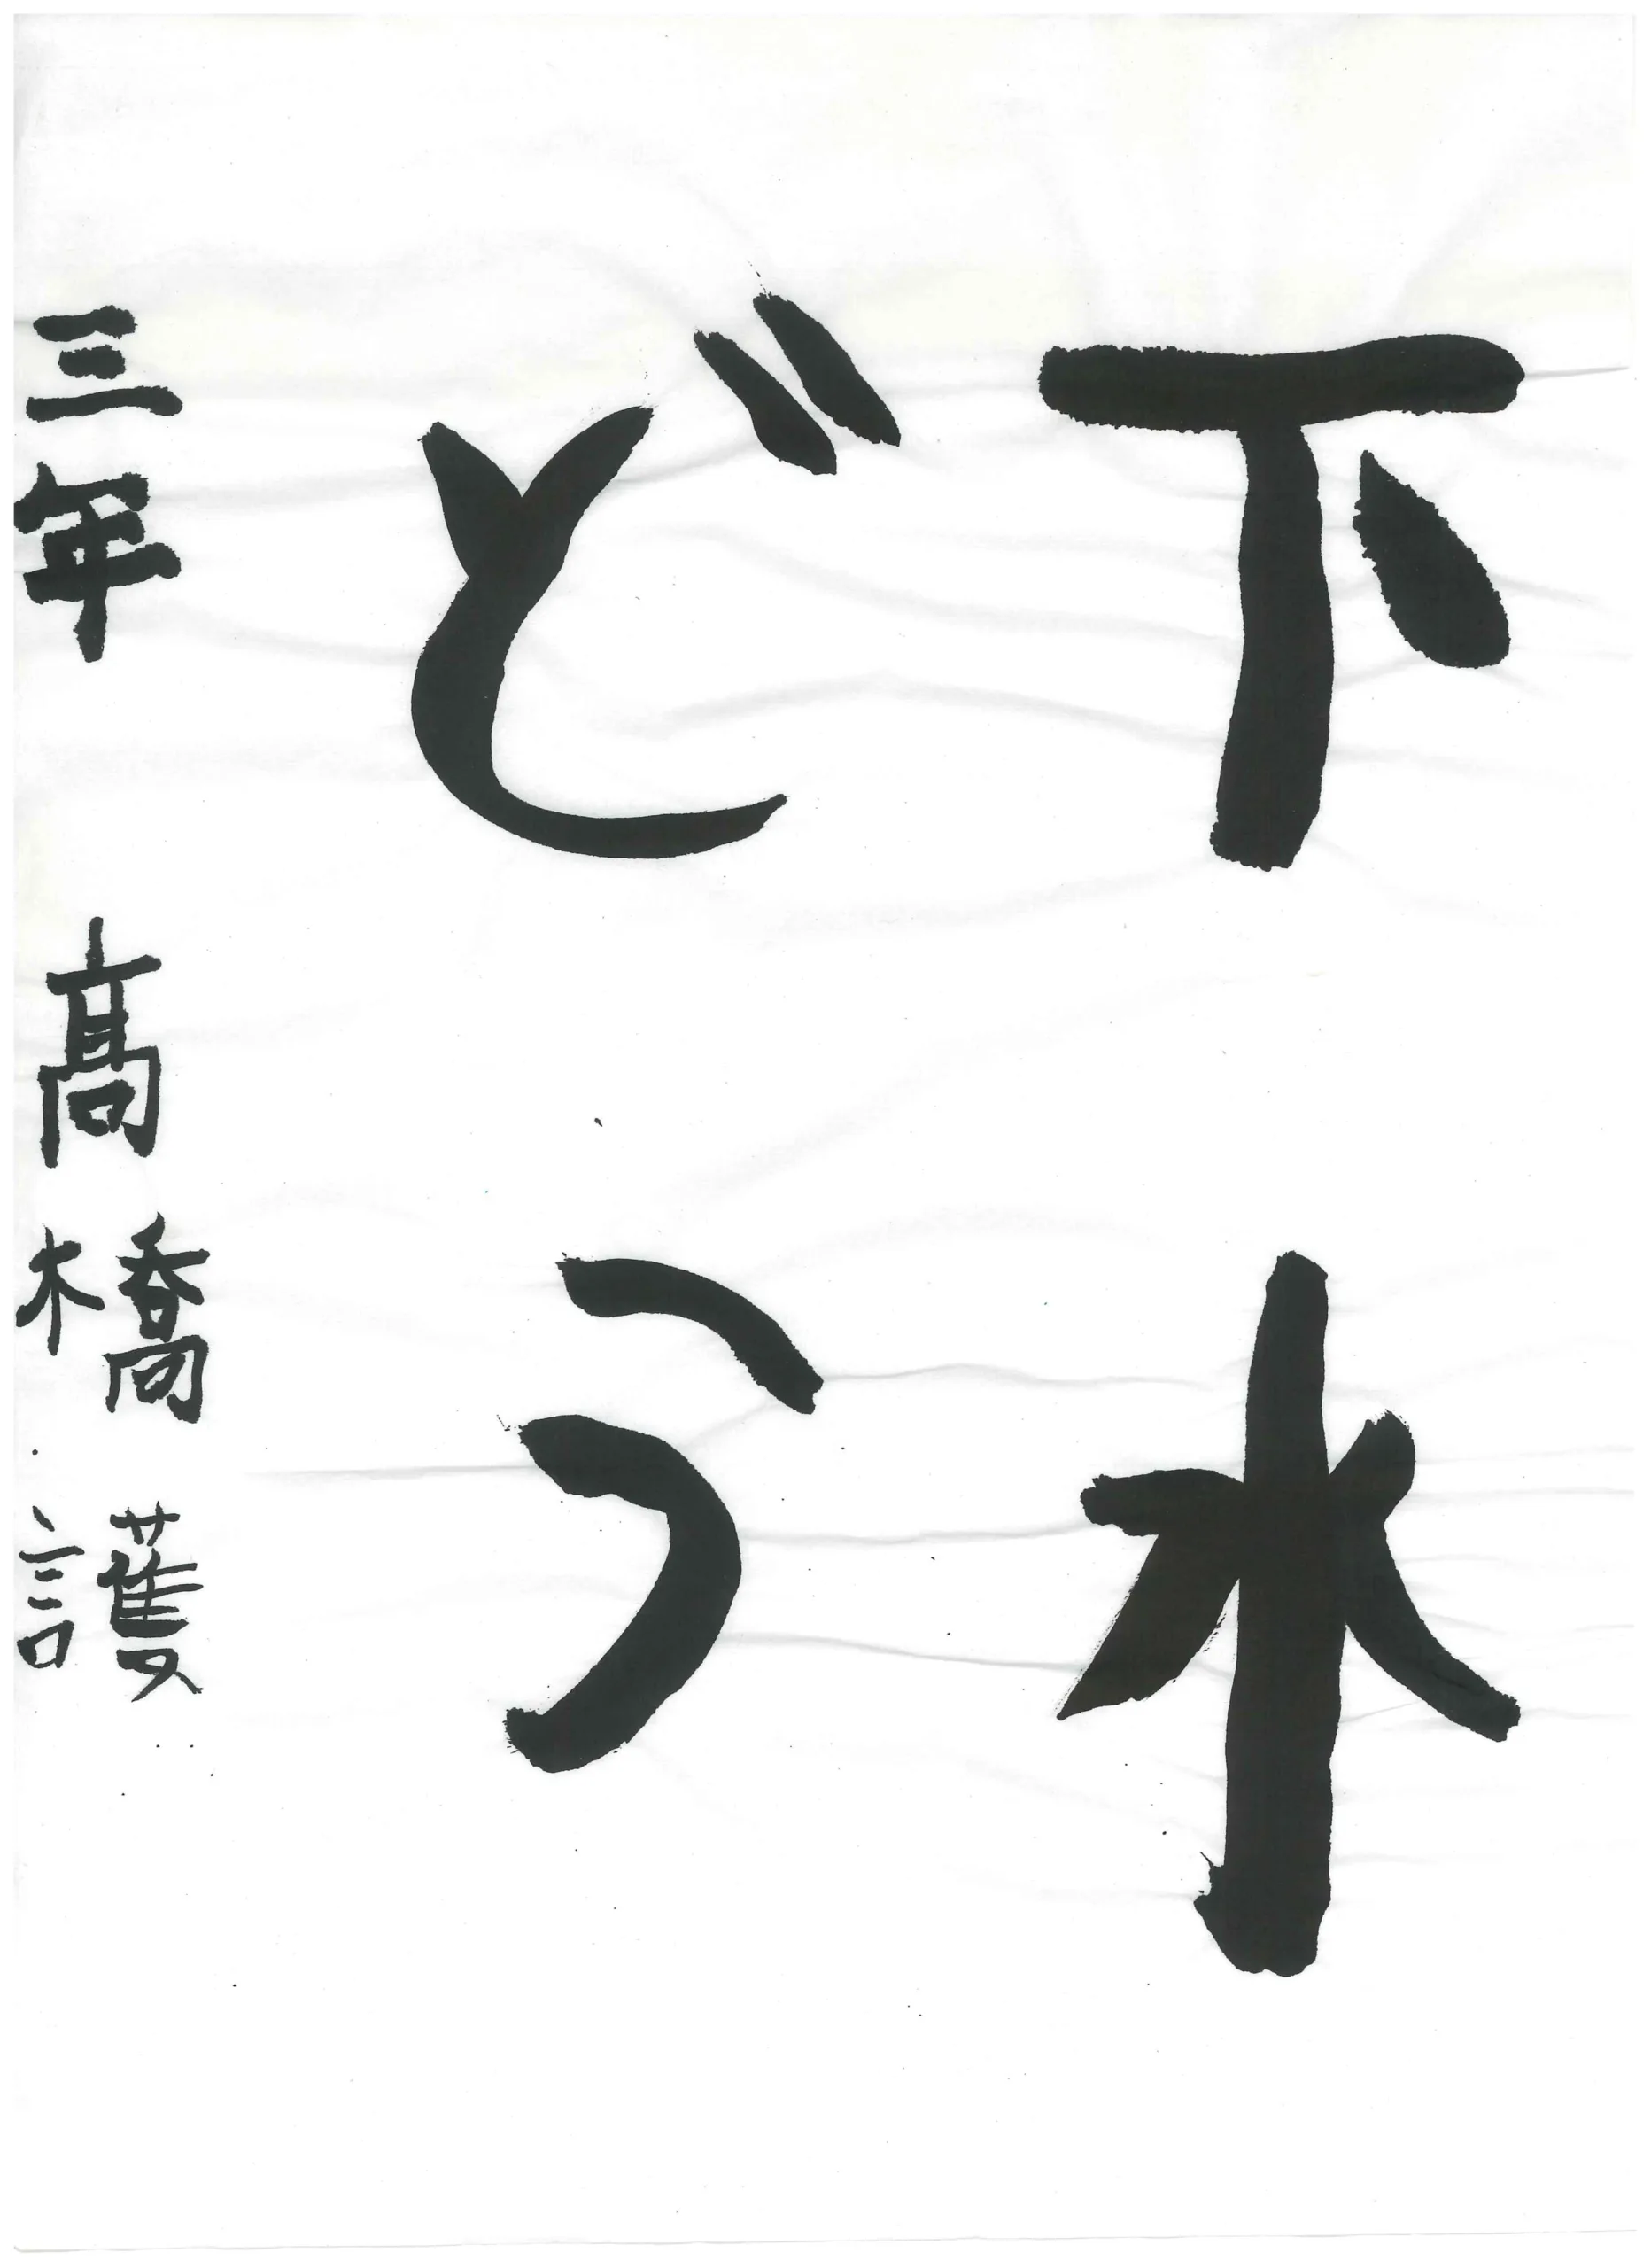 下水
どう
三年 髙橋護